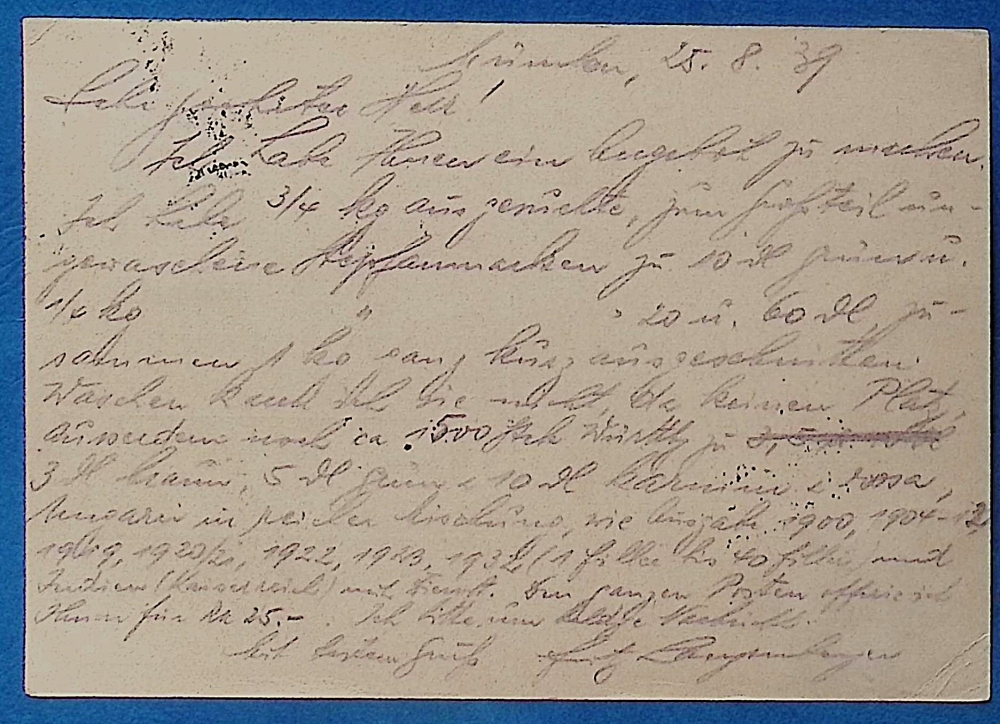 München, 25. 8. 39
Sehr geehrter Herr!
Ich habe Ihnen ein Angebot zu machen.
Ich habe 3/4 kg ausgesuchte, zum Großteil un-
gewaschene marken zu 10 dl grün u.
1/4 kg " " 20 u. 60 dl, zu-
sammen 1 kg ganz kurz ausgeschnitten.
Waschen kann ich sie nicht, da keinen Platz,
ausserdem noch ca 1500 Stck Württbg zu
3 dl braun, 5 dl grün u 10 dl karmin u rosa,
Ungarn in reicher Mischung, wie Ausgabe 1900, 1904-12,
1919, 1920/21, 1922, 1923, 1932 (1 filler bis 40 filler) und
Indien (Kaiserreich) mit Dienst. Den ganzen Posten offeriere ich
Ihnen für RM 25.-. Ich bitte um baldige Nachricht.
Mit bestem Gruß Fritz